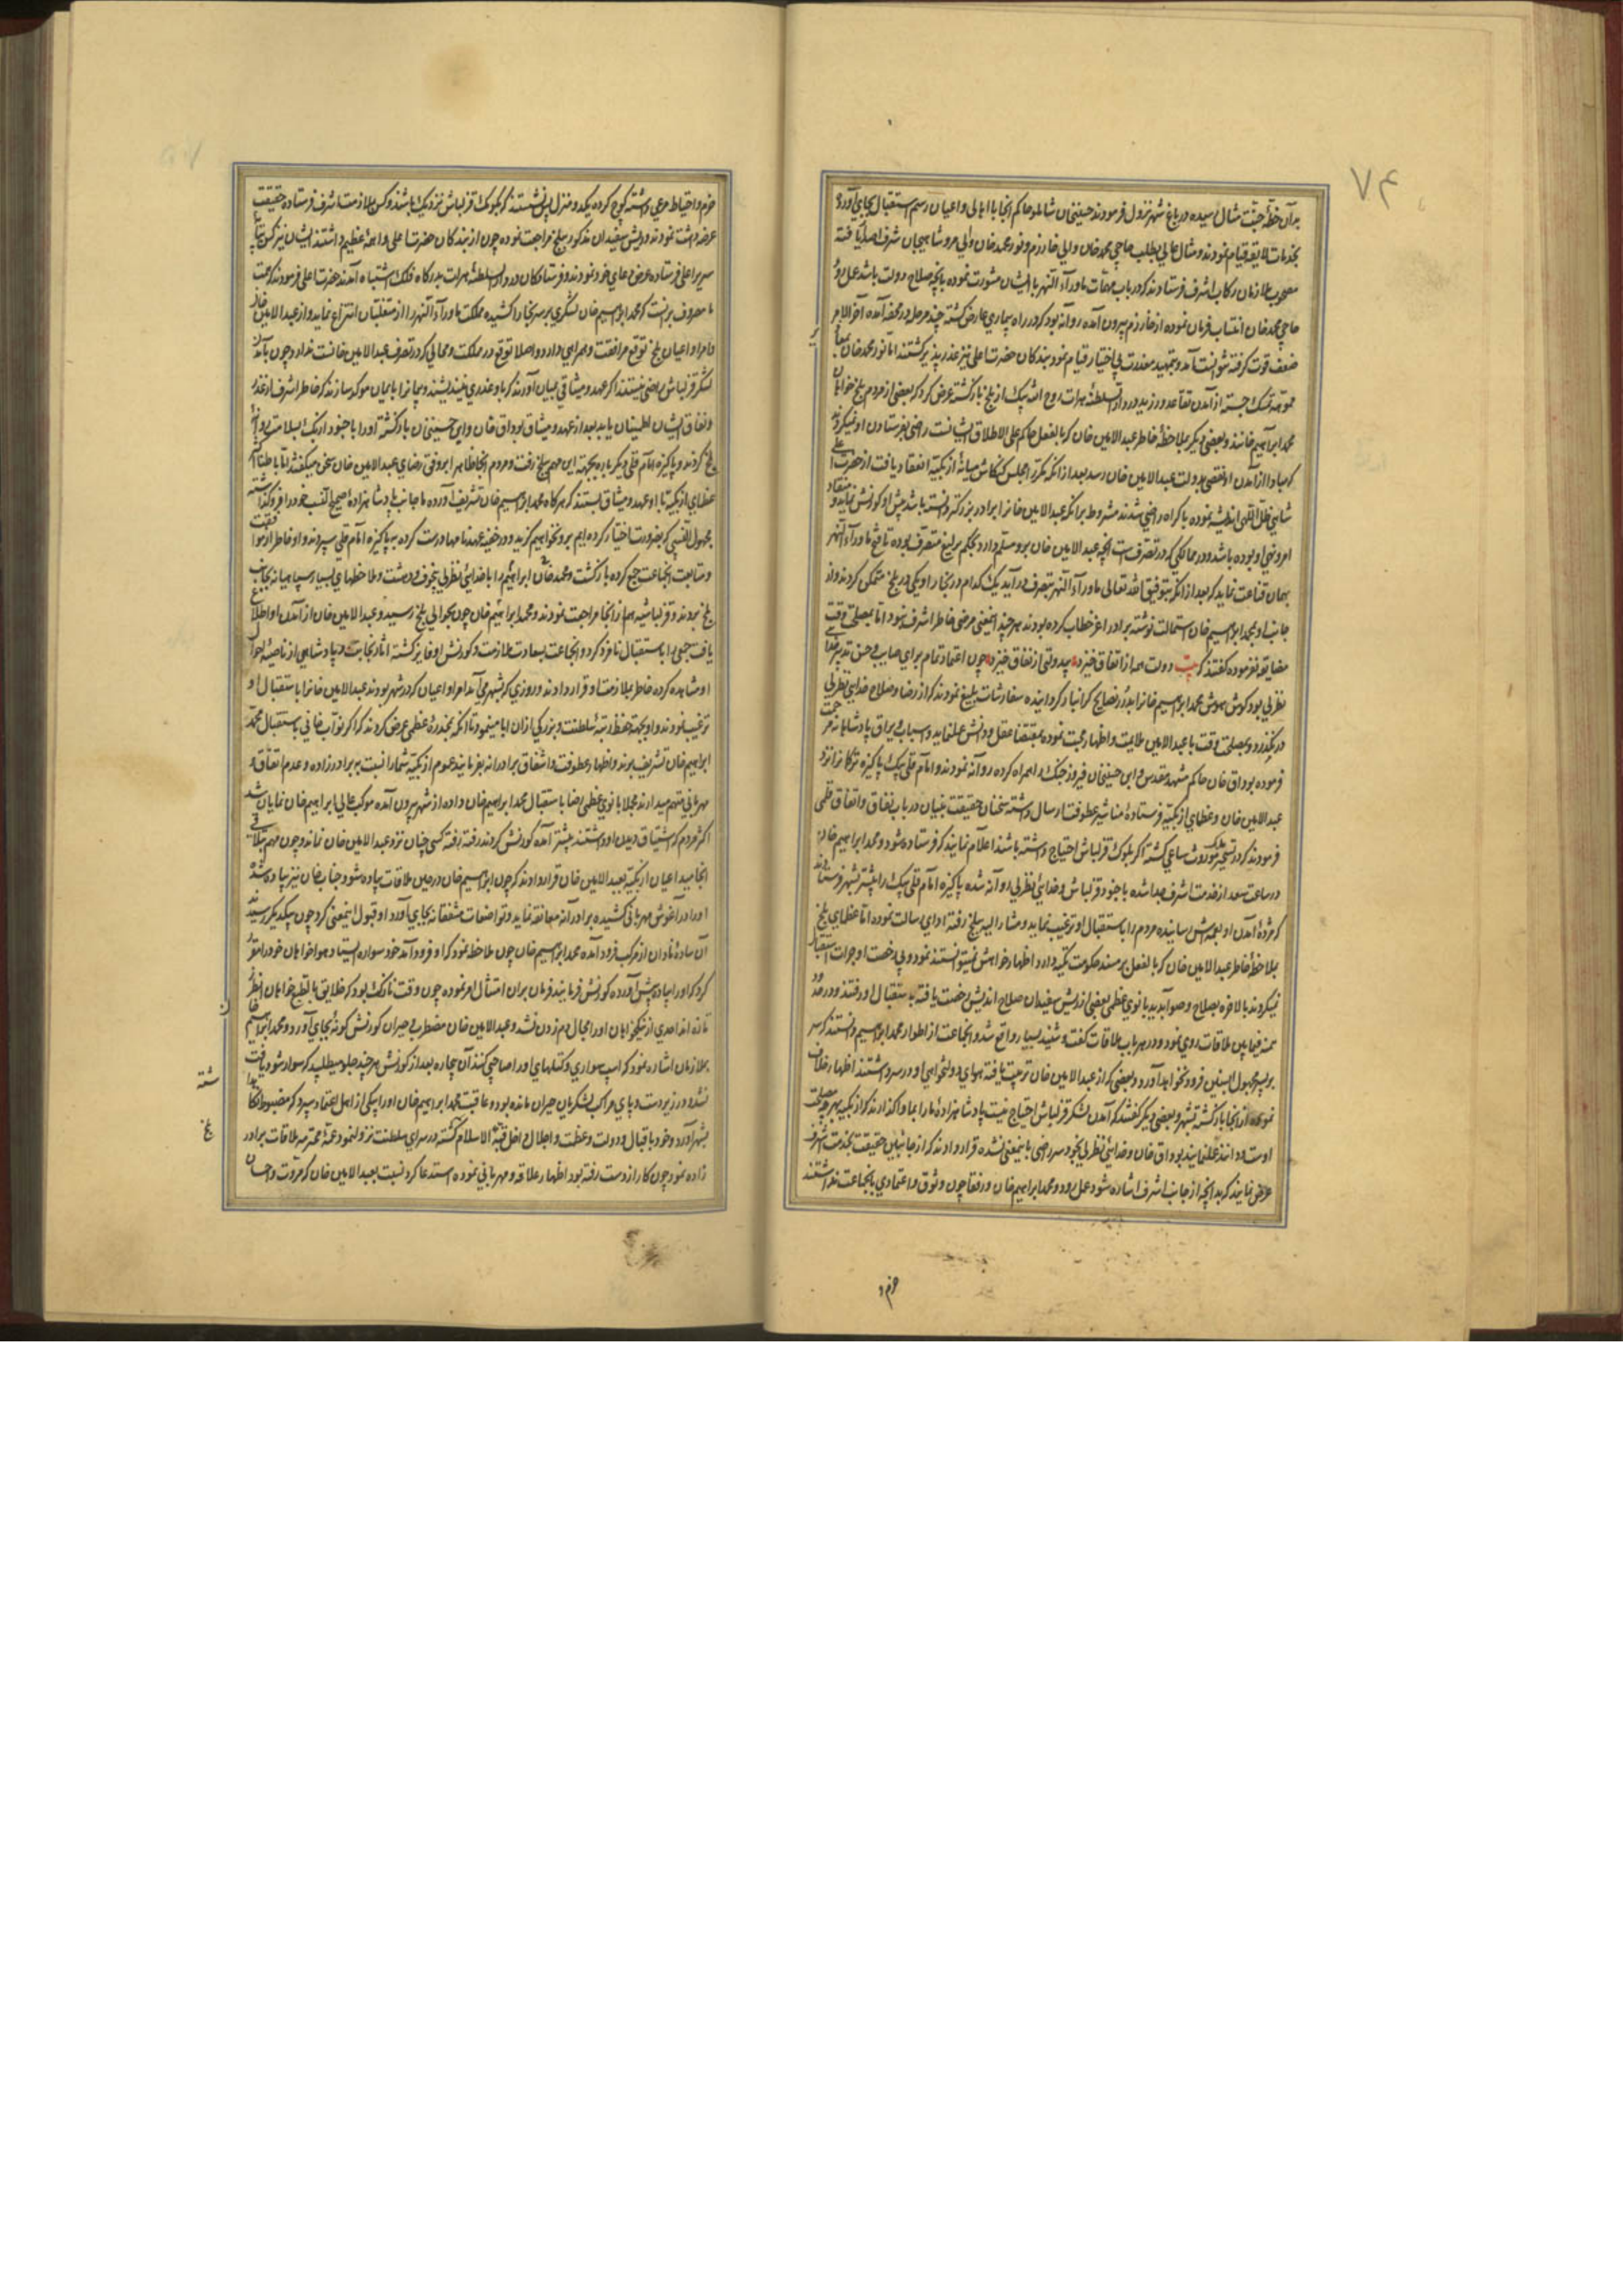 ۷۴
بدان خطهٔ جنت مثال رسیده در باغ شهر نزول فرمودند حسینخان شاملو حاکم انجا با اهالی و اعیان رسم استقبال بجای آورده
بخدمات لایقه قیام نمودند و مثال عالی بطلب حاجی محمد خان والی خوارزم و نور محمد خان والی مرو شاهیجان شرف اصدار یافته
مصحوب ملازمان رکاب اشرف فرستادند که در باب مهمات ماوراء النهر با ایشان مشورت نموده بانچه صلاح دولت باشد عمل رود
حاجی محمد خان انتساب فرمان نموده از خوارزم بیرون آمده روانه بود که در راه بیماری عارض گشته چند مرحله در محفه آمده آخر الامر
ضعف قوت گرفته نتوانست آمد و بتمهید معذرت بی اختیار قیام نمود بندگان حضرت اعلی نیز عذر پذیر گشتند اما نور محمد خان
تمسک جسته از آمدن تقاعد ورزید در دار السلطنهٔ هرات روح الله بیک از بلخ بازگشته عرض کرد که بعضی از مردم بلخ خواهان
محمد ابراهیم خانند و بعضی دیگر بملاحظهٔ خاطر عبد الامین خان که بالفعل حاکم علی الاطلاق ایشانست راضی بفرستادن او نمیگردند
که مبادا از آمدن او نقصی بدولت عبد الامین خان رسد بعد از انکه مکرر مجلس کنکاش میانهٔ ازبکیه انعقاد یافت از حضرت اعلی
شاهی ظل اللهی اندیشه نموده باکراه راضی شدند مشروط برانکه عبد الامین خانرا برادر بزرگتر دانسته باشد پیش او کورنش نماید و منقاد
امر و نهی او بوده باشد و در ممالکی که در تصرفست انچه عبد الامین خان برو مسلم دارد بحکم یرلیغ متصرف بوده تا فتح ماوراء النهر
بهمان قناعت نماید که بعد از انکه بتوفیق الله تعالی ماوراء النهر بتصرف درآید یک کدام در بخارا و یکی در بلخ متمکن گردند و از
جانب او بمحمد ابراهیم خان استمالت نوشته برادر اعز خطاب کرده بودند هر چند اینمعنی مرضی خاطر اشرف نبود اما بمصلحت وقت
مضایقه نفرموده گفتند که بیت دولت همه از اتفاق خیزد بیدولتی از نفاق خیزد چون اعتماد تمام برای صایب و حسن تدبیر
نظر بی بود گوش هوش محمد ابراهیم خانرا بدرر نصایح گرانبار گردانیده سفارشات بلیغ نمودند که از رضا و صلاح خدایی نظر بی
در نگذرد و بمصلحت وقت با عبد الامین ملایمت و اظهار محبت نموده بمقتضای عقل و دانش عمل نماید و اسباب و یراق پادشاهانه مرحمت
فرموده بوداق خان حاکم مشهد مقدس و ابی حسینخان فیروز جنگ را همراه کرده روانه نمودند و امام قلی بیک پاکیزه ترکمانرا نزد
عبد الامین خان و عظمای ازبکیه فرستاده مناشیر عطوفت ارسال داشته سخنان حقیقت بنیان در باب نفاق و اتفاق قلمی
فرمودند که در تسخیر ملک موروث ساعی گشته اگر بکومک قزلباش احتیاج داشته باشند اعلام نمایند که فرستاده شود و محمد ابراهیم خان
در ساعت سعد از خدمت اشرف جدا شده با جنود قزلباش و خدایی نظر بی روانه شده پاکیزه امام قلی بیک را پیشتر بشهر فرستادند
که مژدهٔ آمدن او بهمه کس رسانیده مردم را باستقبال او ترغیب نماید و مشار الیه ببلخ رفته ادای رسالت نموده اما عظمای بلخ
بملاحظهٔ خاطر عبد الامین خان که بالفعل بر مسند حکومت تکیه دارد اظهار خواهش نمیتوانستند نمود و بی رخصت او جرات استقبال
نمیکردند بالاخره بصلاح و صوابدید بانوی عظمی بعضی از ریش سفیدان صلاح اندیش رخصت یافته باستقبال او رفتند و در حدود
میمنه فیمابین ملاقات روی نمود و در هر باب مقالات گفت و شنید بسیار واقع شد و انجماعت از اطوار محمد ابراهیم دانستند که سر
بر پسر مجهول النسبی فرود نخواهد آورد و بعضی که از عبد الامین خان تربیت یافته هوای دولتخواهی او در سر داشتند اظهار خلاف
نموده از انجا بازگشته بشهر و بعضی دیگر گفتند که آمدن لشکر قزلباش احتیاج نیست پادشاهزادهٔ ما را بما واگذارند که ازبکیه بهر چه مصلحت
اوست دانند عمل نمایند بوداق خان و خدایی نظر بی بخود سر راضی باینمعنی نشده قرار دادند که از جانبین حقیقت بخدمت اشرف
عرض نمایند که بدانچه از جانب اشرف اشاره شود عمل رود و محمد ابراهیم خان و رفقا چون وثوق و اعتمادی بانجماعت نداشتند
حزم و
حزم و احتیاط مرعی داشته کوچ کرده یکدو منزل پس نشستند که بکومک قزلباش نزدیک باشند و کس بملازمت اشرف فرستاده حقیقت
عرضه داشت نمودند و ریش سفیدان مذکور ببلخ مراجعت نموده چون از بندگان حضرت اعلی واهمهٔ عظیم داشتند ایشان نیز کس بپایهٔ
سریر اعلی فرستاده عرض مدعای خود نمودند و فرستادگان در دار السلطنهٔ هرات بدرگاه فلک اشتباه آمدند حضرت اعلی فرمودند که همت
ما مصروف برینست که محمد ابراهیم خان لشکری بر سر بخارا کشیده مملکت ماوراء النهر را از متغلبان انتزاع نماید و از عبد الامین خان
و امرا و اعیان بلخ توقع مرافقت و همراهی دارد و اصلا توقع در مملکت و محالی که در تصرف عبد الامین خانست ندارد و چون بآمدن
لشکر قزلباش راضی نیستند اگر عهد و میثاقی بمیان آورند که با او غدری نیندیشند و پیمانرا بایمان موکد سازند که خاطر اشرف از غدر
و نفاق ایشان اطمینان یابد بعد از عهد و میثاق بوداق خان و ابی حسینخان بازگشته او را با جنود ازبک بسلامت روانهٔ
بلخ کردند و پاکیزه امام قلی دیگر باره بجهة این مهم ببلخ رفت و مردم انجا ظاهرا بر وفق رضای عبد الامین خان سخن میگفتند اما باطنا اکثر
عظمای ازبکیه با او عهد و میثاق بستند که هرگاه محمد ابراهیم خان تشریف آورده ما جانب پادشاهزادهٔ صحیح النسب خود را فرو گذاشته
مجهول النسبی که بضرورت اختیار کرده ایم برو نخواهیم گزید و در خفیه عهدنامها درست کرده به پاکیزه امام قلی سپردند و او خاطر از موافقت
و متابعت انجماعت جمع کرده بازگشت و محمد خان ابراهیم را با خدایی نظر بی بخوف و دهشت و ملاحظهای بسیار سپاهیانه بجانب
بلخ بردند و قزلباشیه هم از انجا مراجعت نمودند و محمد ابراهیم خان چون بحوالی بلخ رسید و عبد الامین خان از آمدن او اطلاع
یافت جمعی را باستقبال نامزد کرد و انجماعت بسعادت ملازمت و کورنش او فایز گشته آثار نجابت و پادشاهی از ناصیهٔ احوال
او مشاهده کرده خاطر بملازمت او قرار دادند و روزی که بشهر می آمد امرا و اعیان که در شهر بودند عبد الامین خانرا باستقبال او
ترغیب نمودند و او بجهة حفظ رتبهٔ سلطنت و بزرگی ازان ابا مینمود تا انکه بمخدرهٔ عظمی عرض کردند که اگر نواب خانی باستقبال محمد
ابراهیم خان تشریف برند و اظهار عطوفت و اشفاق برادرانه بفرمایند عموم ازبکیه شما را نسبت به برادرزاده و عدم اتفاق و
مهربانی متهم میدارند مجملا بانوی عظمی رضا باستقبال محمد ابراهیم خان داده از شهر بیرون آمده موکب عالی ابراهیم خان نمایان شد
اکثر مردم که اشتیاق دیدن او داشتند پیشتر آمده کورنش کردند رفته رفته کسی چنان نزد عبد الامین خان نماند و چون مهم بملاقات
انجامید اعیان ازبکیه بعبد الامین خان قرار دادند که چون ابراهیم خان در حین ملاقات پیاده شود جناب خان نیز پیاده شده
او را در آغوش مهربانی کشیده برادرانه معانقه نماید و تواضعات مشفقانه بجای آورد او قبول اینمعنی کرد چون بیکدیگر رسیدند
آن سادهٔ نادان از مرکب فرود آمده محمد ابراهیم خان چون ملاحظه نمود که او فرود آمد خود سواره ایستاد و هواخواهان خود را مقرر
کرد که او را پیاده پیش آورده کورنش فرمایند فرمان بران امتثال امر نموده چون وقت نازک بود که خلایق بالطبع خواهان
تازه اند احدی از نیکخواهان او را مجال دم زدن نشد و عبد الامین خان مضطرب حیران کورنش گونهٔ بجای آورد و محمد ابراهیم
بملازمان اشاره نمود که اسپ سواری و کتلهای او را صاحبی کنند آن بیچاره بعد از کورنش هر چند جلو میطلبید که سوار شود یافت
نشد و در زیر دست و پای مراکب لشکریان حیران مانده بود و عاقبت محمد ابراهیم خان او را بیکی از اهل اعتماد سپرد که مضبوط
بشهر آورد و خود باقبال و دولت و عظمت و اجلال داخل قبة الاسلام گشته در سرای سلطنت نزول نمود عمهٔ محترمه ملاقات برادر
زاده نمود چون کار از دست رفته بود اظهار علاقه و مهربانی نموده استدعا کرد نسبت بعبد الامین خان که مروت و احسان